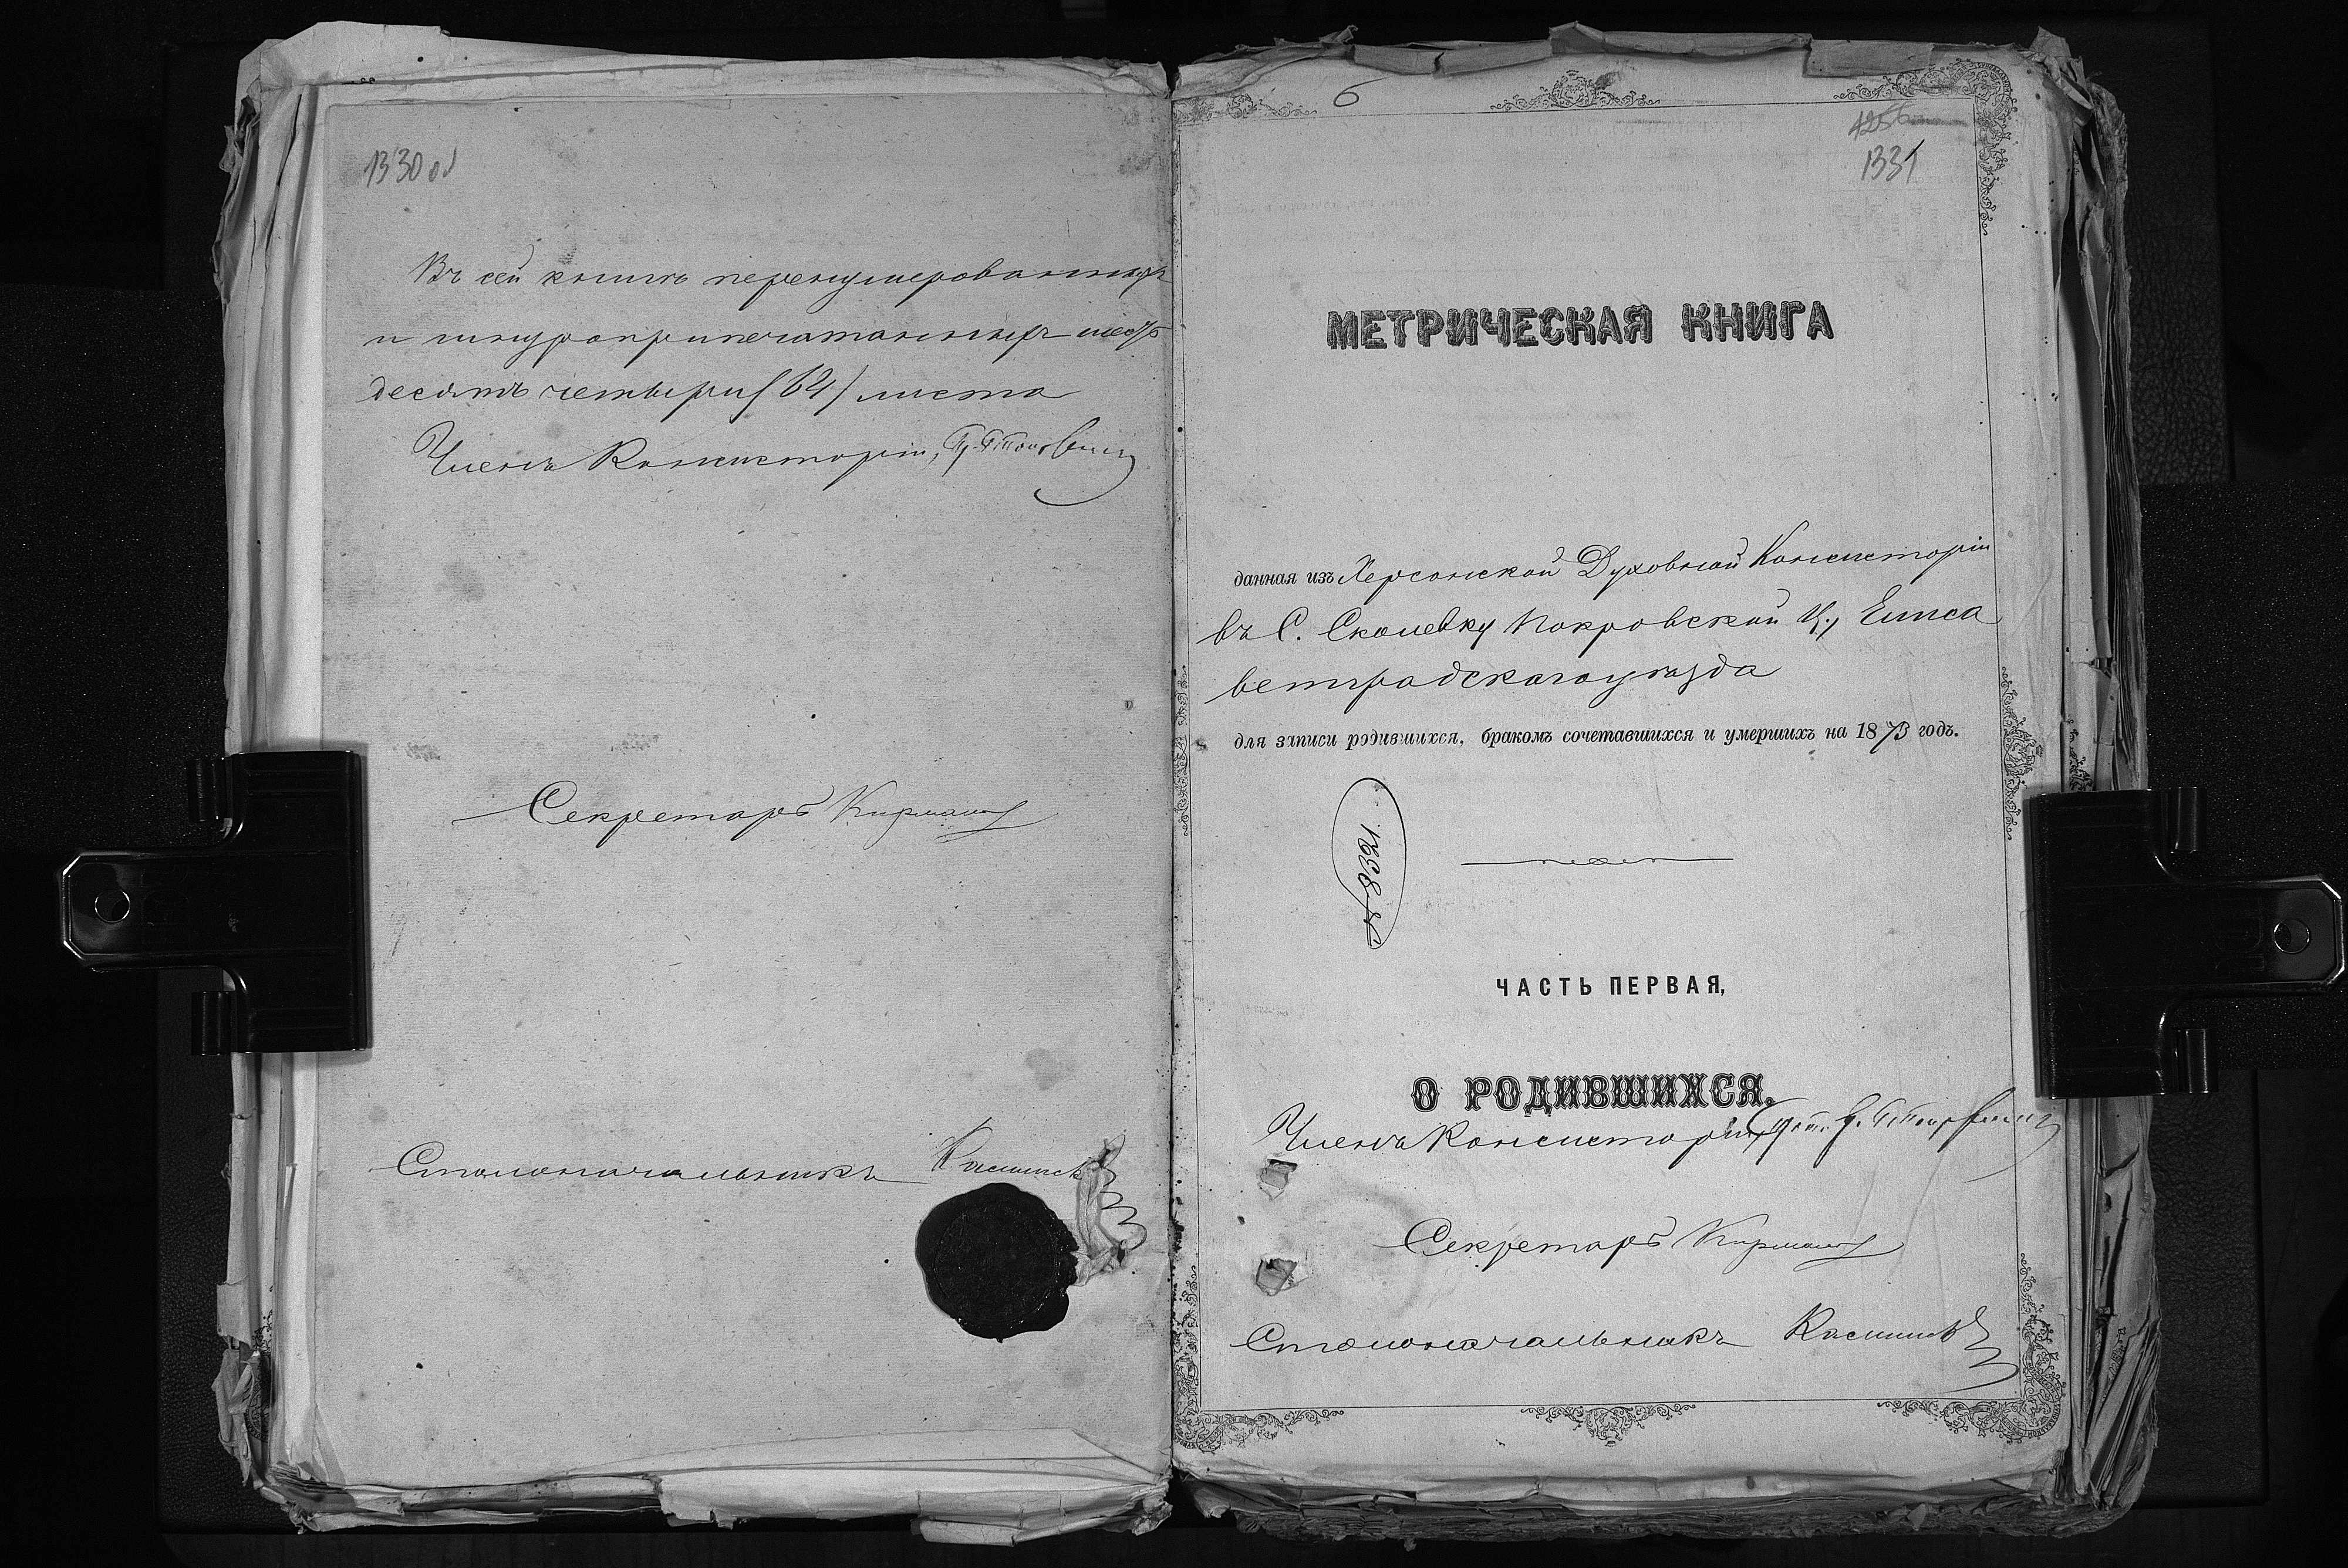 1330 об
Въ сей книгѣ перенумерованныхъ
и шнуроприпечатанныхъ шесть
десятъ четыри (64) листа
Членъ Консисторіи,
Секретарь
Столоначальникъ
6
1256
1331
МЕТРИЧЕСКАЯ КНИГА
данная изъ Херсонской Духовной Консисторіи
въ С. Скалевку Покровской Ц., Елиса
ветградскаго уѣзда
для записи родившихся, бракомъ сочетавшихся и умершихъ на 1873 годъ.
ЧАСТЬ ПЕРВАЯ,
О РОДИВШИХСЯ.
Членъ Консисторіи,
Секретарь
Столоначальникъ